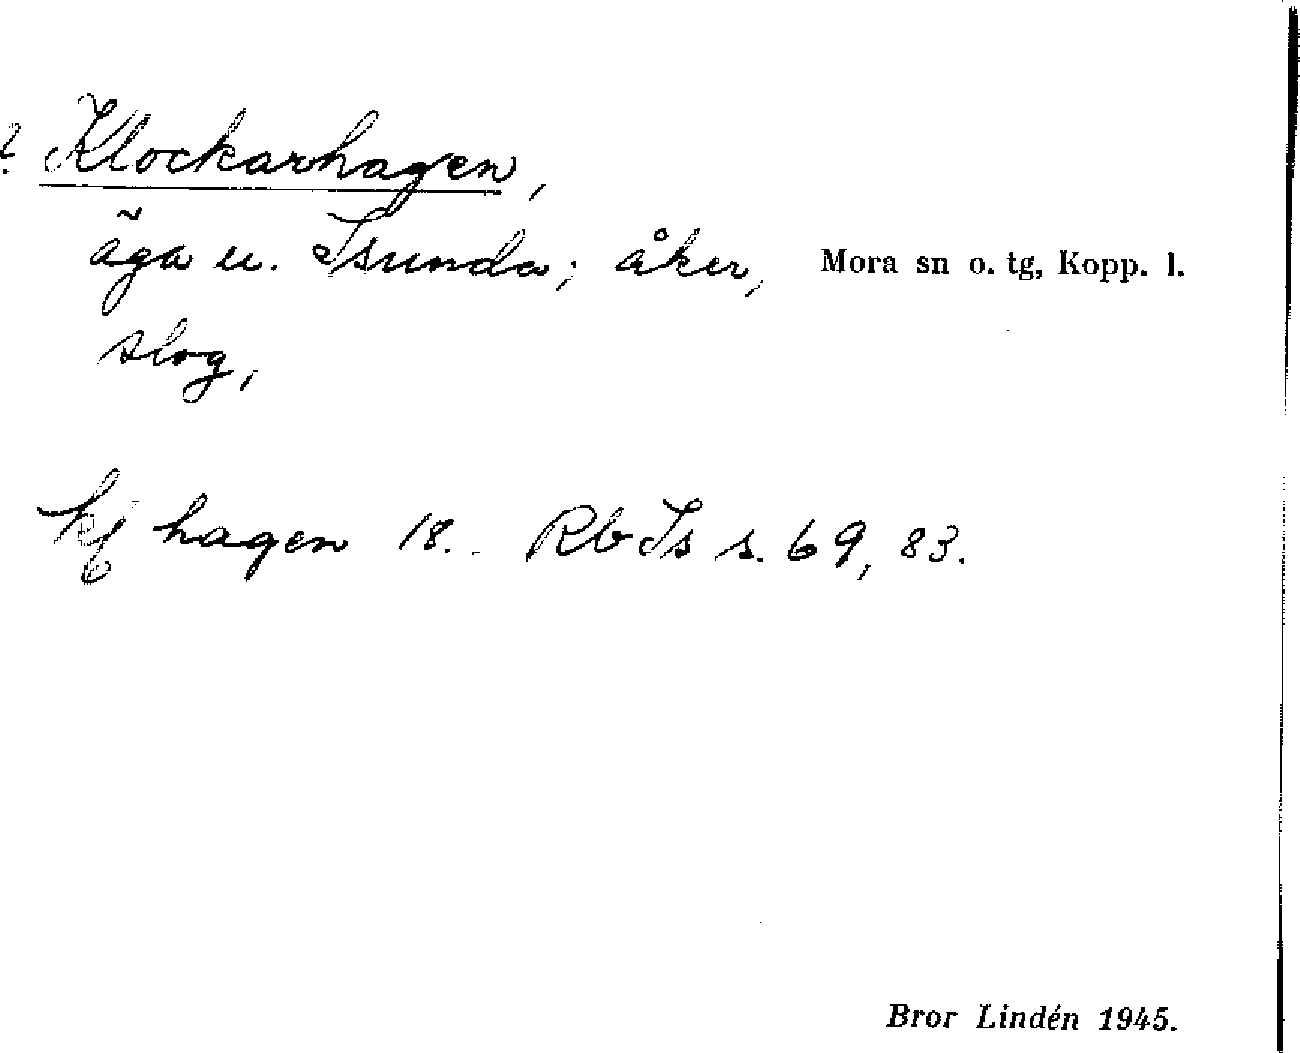 ? Klockarhagen,
äga u. Isunda; åker, Mora sn o. tg, Kopp. l.
slog,
hagen 18.. Rb Is s. 69, 83.
Bror Lindén 1945.